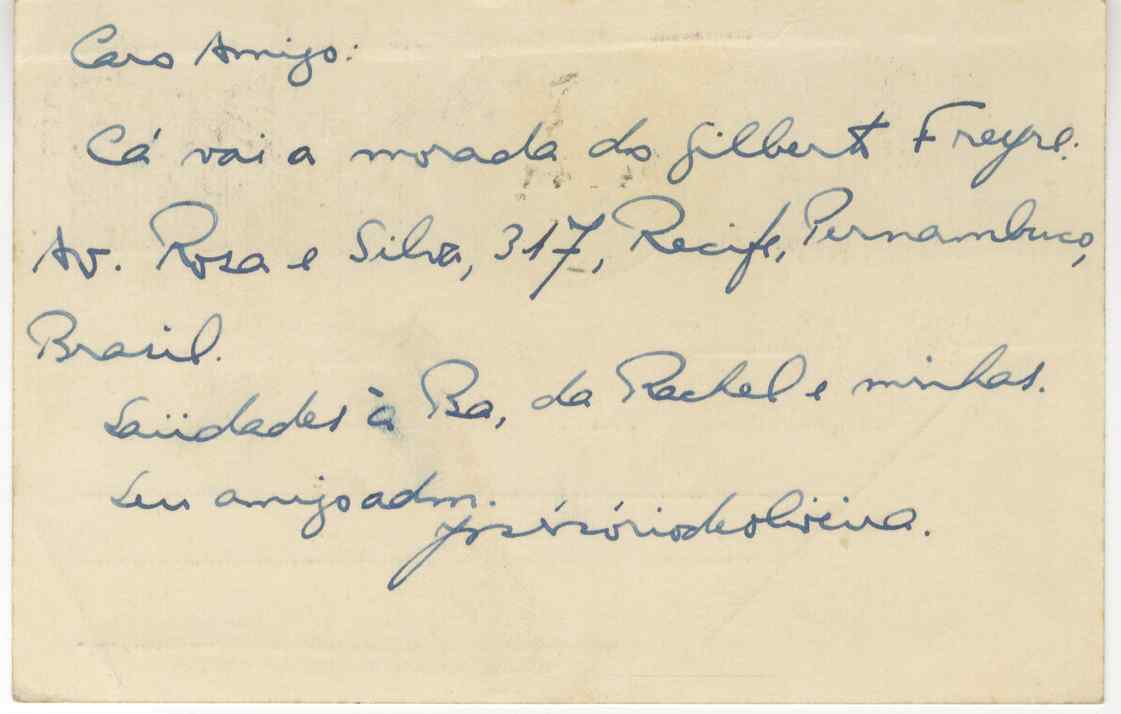 Caro Amigo:
Cá vai a morada do Gilberto Freyre:
Av. Rosa e Silva, 317, Recife, Pernambuco,
Brasil.
Saüdades à Ba, da Rachel e minhas.
Seu amigo adm.
José Osório de Oliveira.